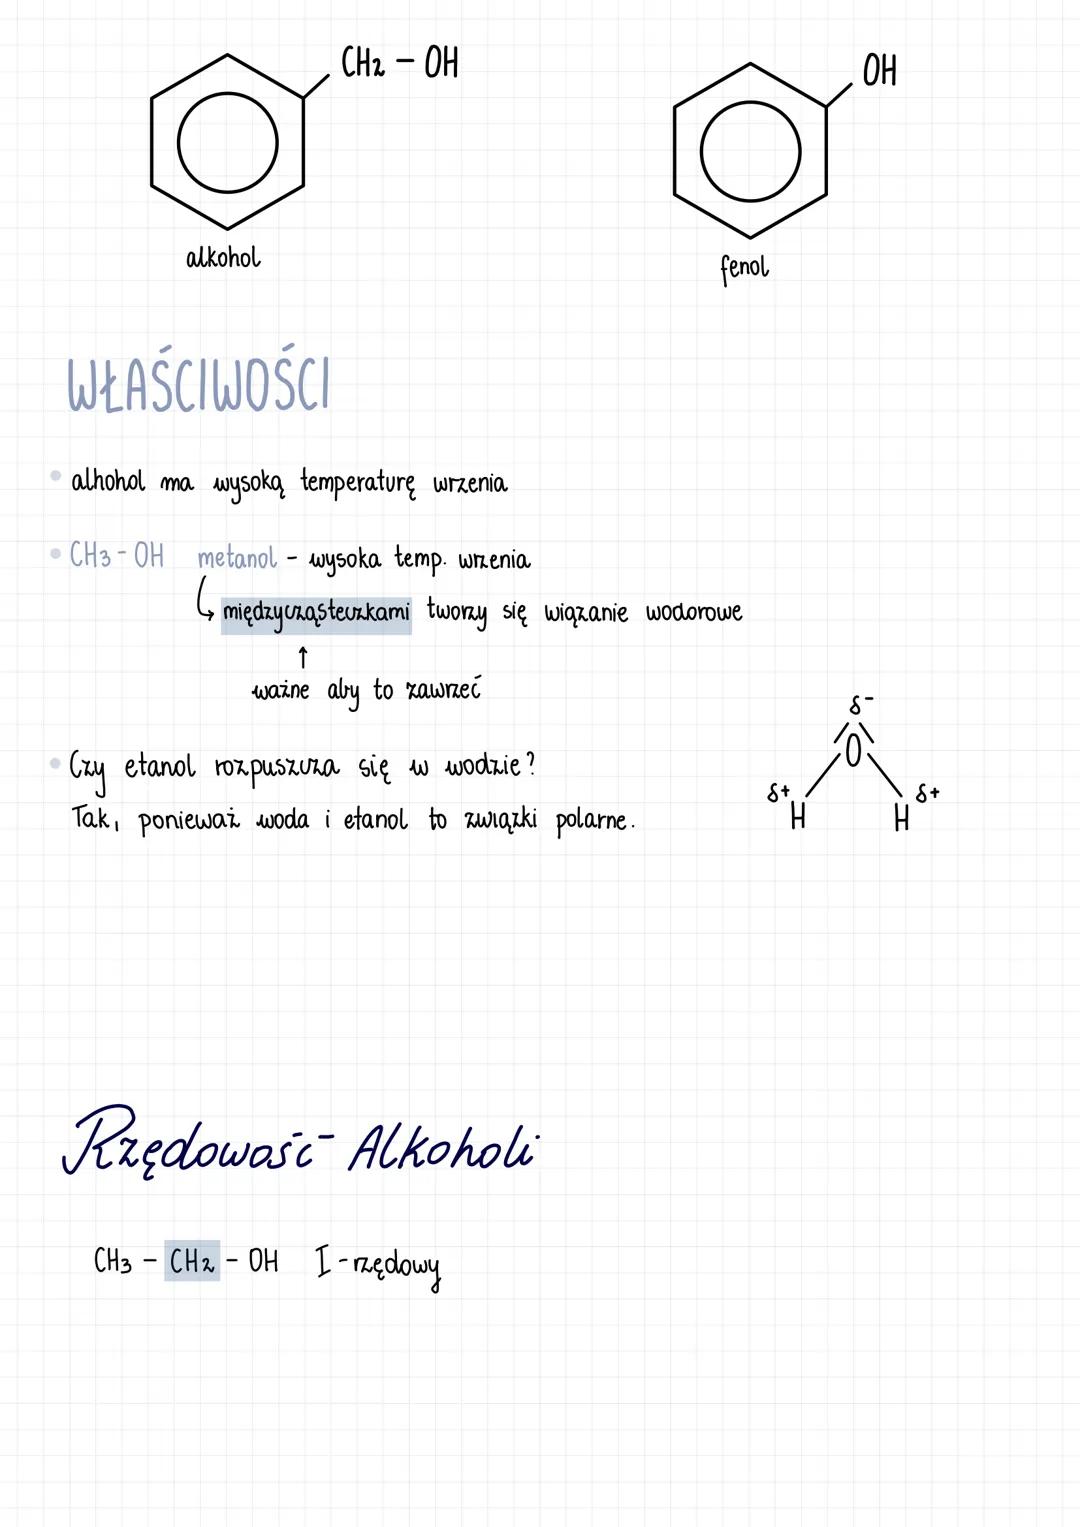 CH2 - OH
OH
alkohol
fenol
WŁAŚCIWOŚCI
• alhohol ma wysoką temperaturę wrzenia
• CH3 - OH metanol - wysoka temp. wrzenia
↳ międzycząsteczkami tworzy się wiązanie wodorowe
↑
ważne aby to zawrzeć
• Czy etanol rozpuszcza się w wodzie?
Tak, ponieważ woda i etanol to związki polarne.
δ-
O
δ+ δ+
H H
Rzędowość Alkoholi
CH3 - CH2 - OH I-rzędowy